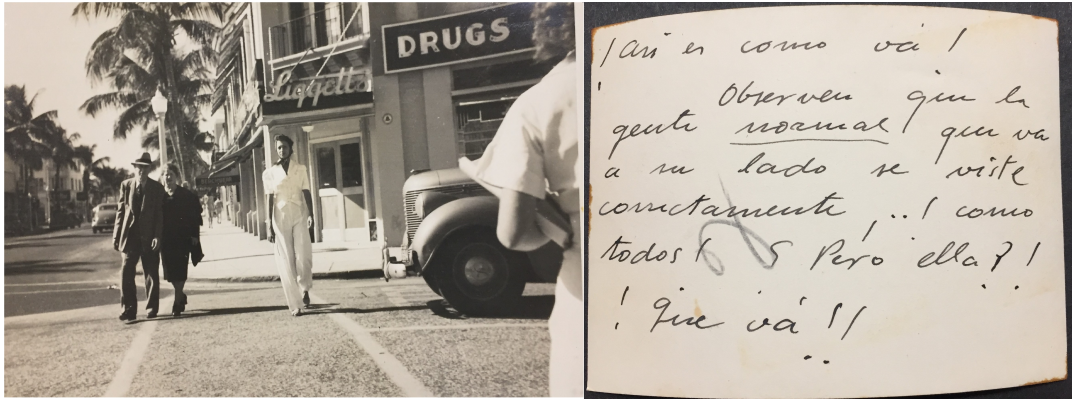 DRUGS
Liggett's
¡Asi es como vá!
Observen que la
gente normal que va
a su lado se viste
correctamente,..! como
todos! ¿Pero ella?!
! Que vá!!